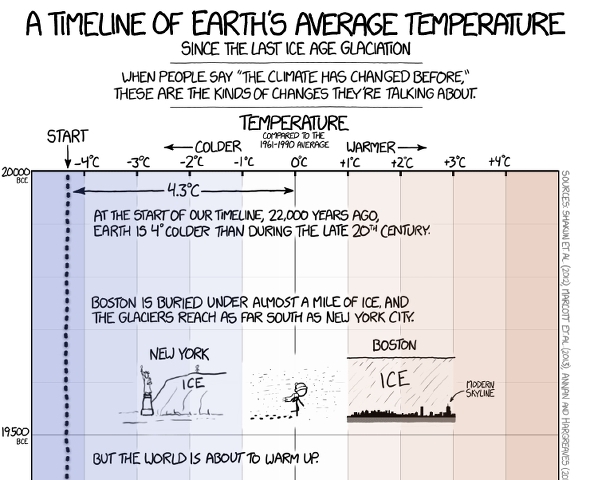 A TIMELINE OF EARTH'S AVERAGE TEMPERATURE
SINCE THE LAST ICE AGE GLACIATION
WHEN PEOPLE SAY "THE CLIMATE HAS CHANGED BEFORE,"
THESE ARE THE KINDS OF CHANGES THEY'RE TALKING ABOUT.
TEMPERATURE
COMPARED TO THE
1961-1990 AVERAGE
START
COLDER
WARMER
-4°C -3°C -2°C -1°C 0°C +1°C +2°C +3°C +4°C
20000
BCE
4.3°C
AT THE START OF OUR TIMELINE, 22,000 YEARS AGO,
EARTH IS 4° COLDER THAN DURING THE LATE 20TH CENTURY.
BOSTON IS BURIED UNDER ALMOST A MILE OF ICE, AND
THE GLACIERS REACH AS FAR SOUTH AS NEW YORK CITY.
NEW YORK
ICE
BOSTON
ICE
MODERN
SKYLINE
19500
BCE
BUT THE WORLD IS ABOUT TO WARM UP.
SOURCES: SHAKUN ET AL (2012), MARCOTT ET AL (2013), ANNAN AND HARGREAVES